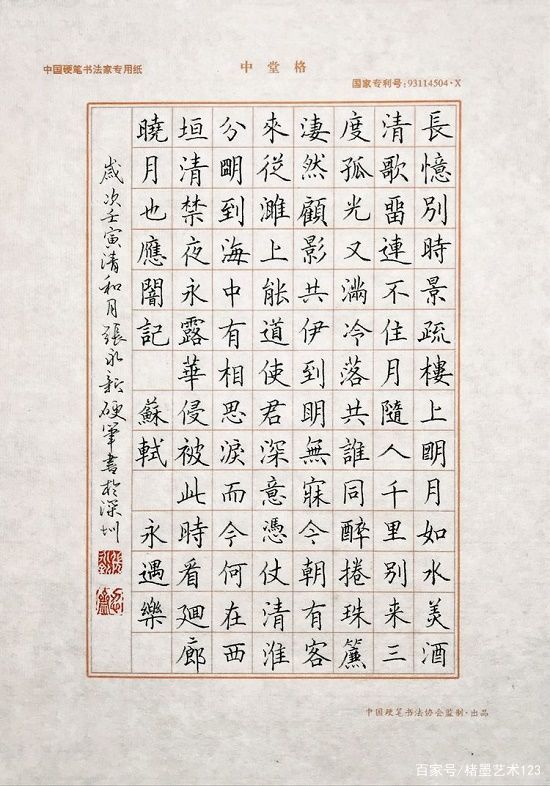 中国硬笔书法家专用纸
中堂格
国家专利号:93114504·X
長憶別時景疏樓上明月如水美酒
清歌畱連不住月隨人千里別来三
度孤光又滿冷落共誰同醉捲珠簾
淒然顧影共伊到明無寐今朝有客
來從濉上能道使君深意憑仗清淮
分明到海中有相思淚而今何在西
垣清禁夜永露華侵被此時看廻廊
曉月也應闇記 蘇軾 永遇樂
歲次壬寅清和月張永新硬筆書於深圳
中国硬笔书法协会监制·出品
百家号/楮墨艺术123